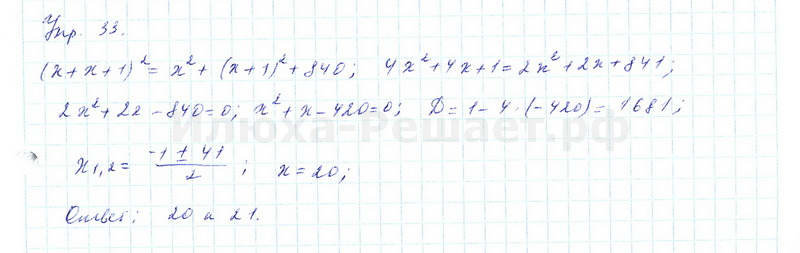 Упр. 33.
(x+x+1)² = x² + (x+1)² + 840; 4x²+4x+1=2x²+2x+841;
2x²+2x-840=0; x²+x-420=0; D=1-4·(-420)=1681;
Илюха-Решает.рф
x₁,₂ = (-1 ± 41)/2; x=20;
Ответ: 20 и 21.